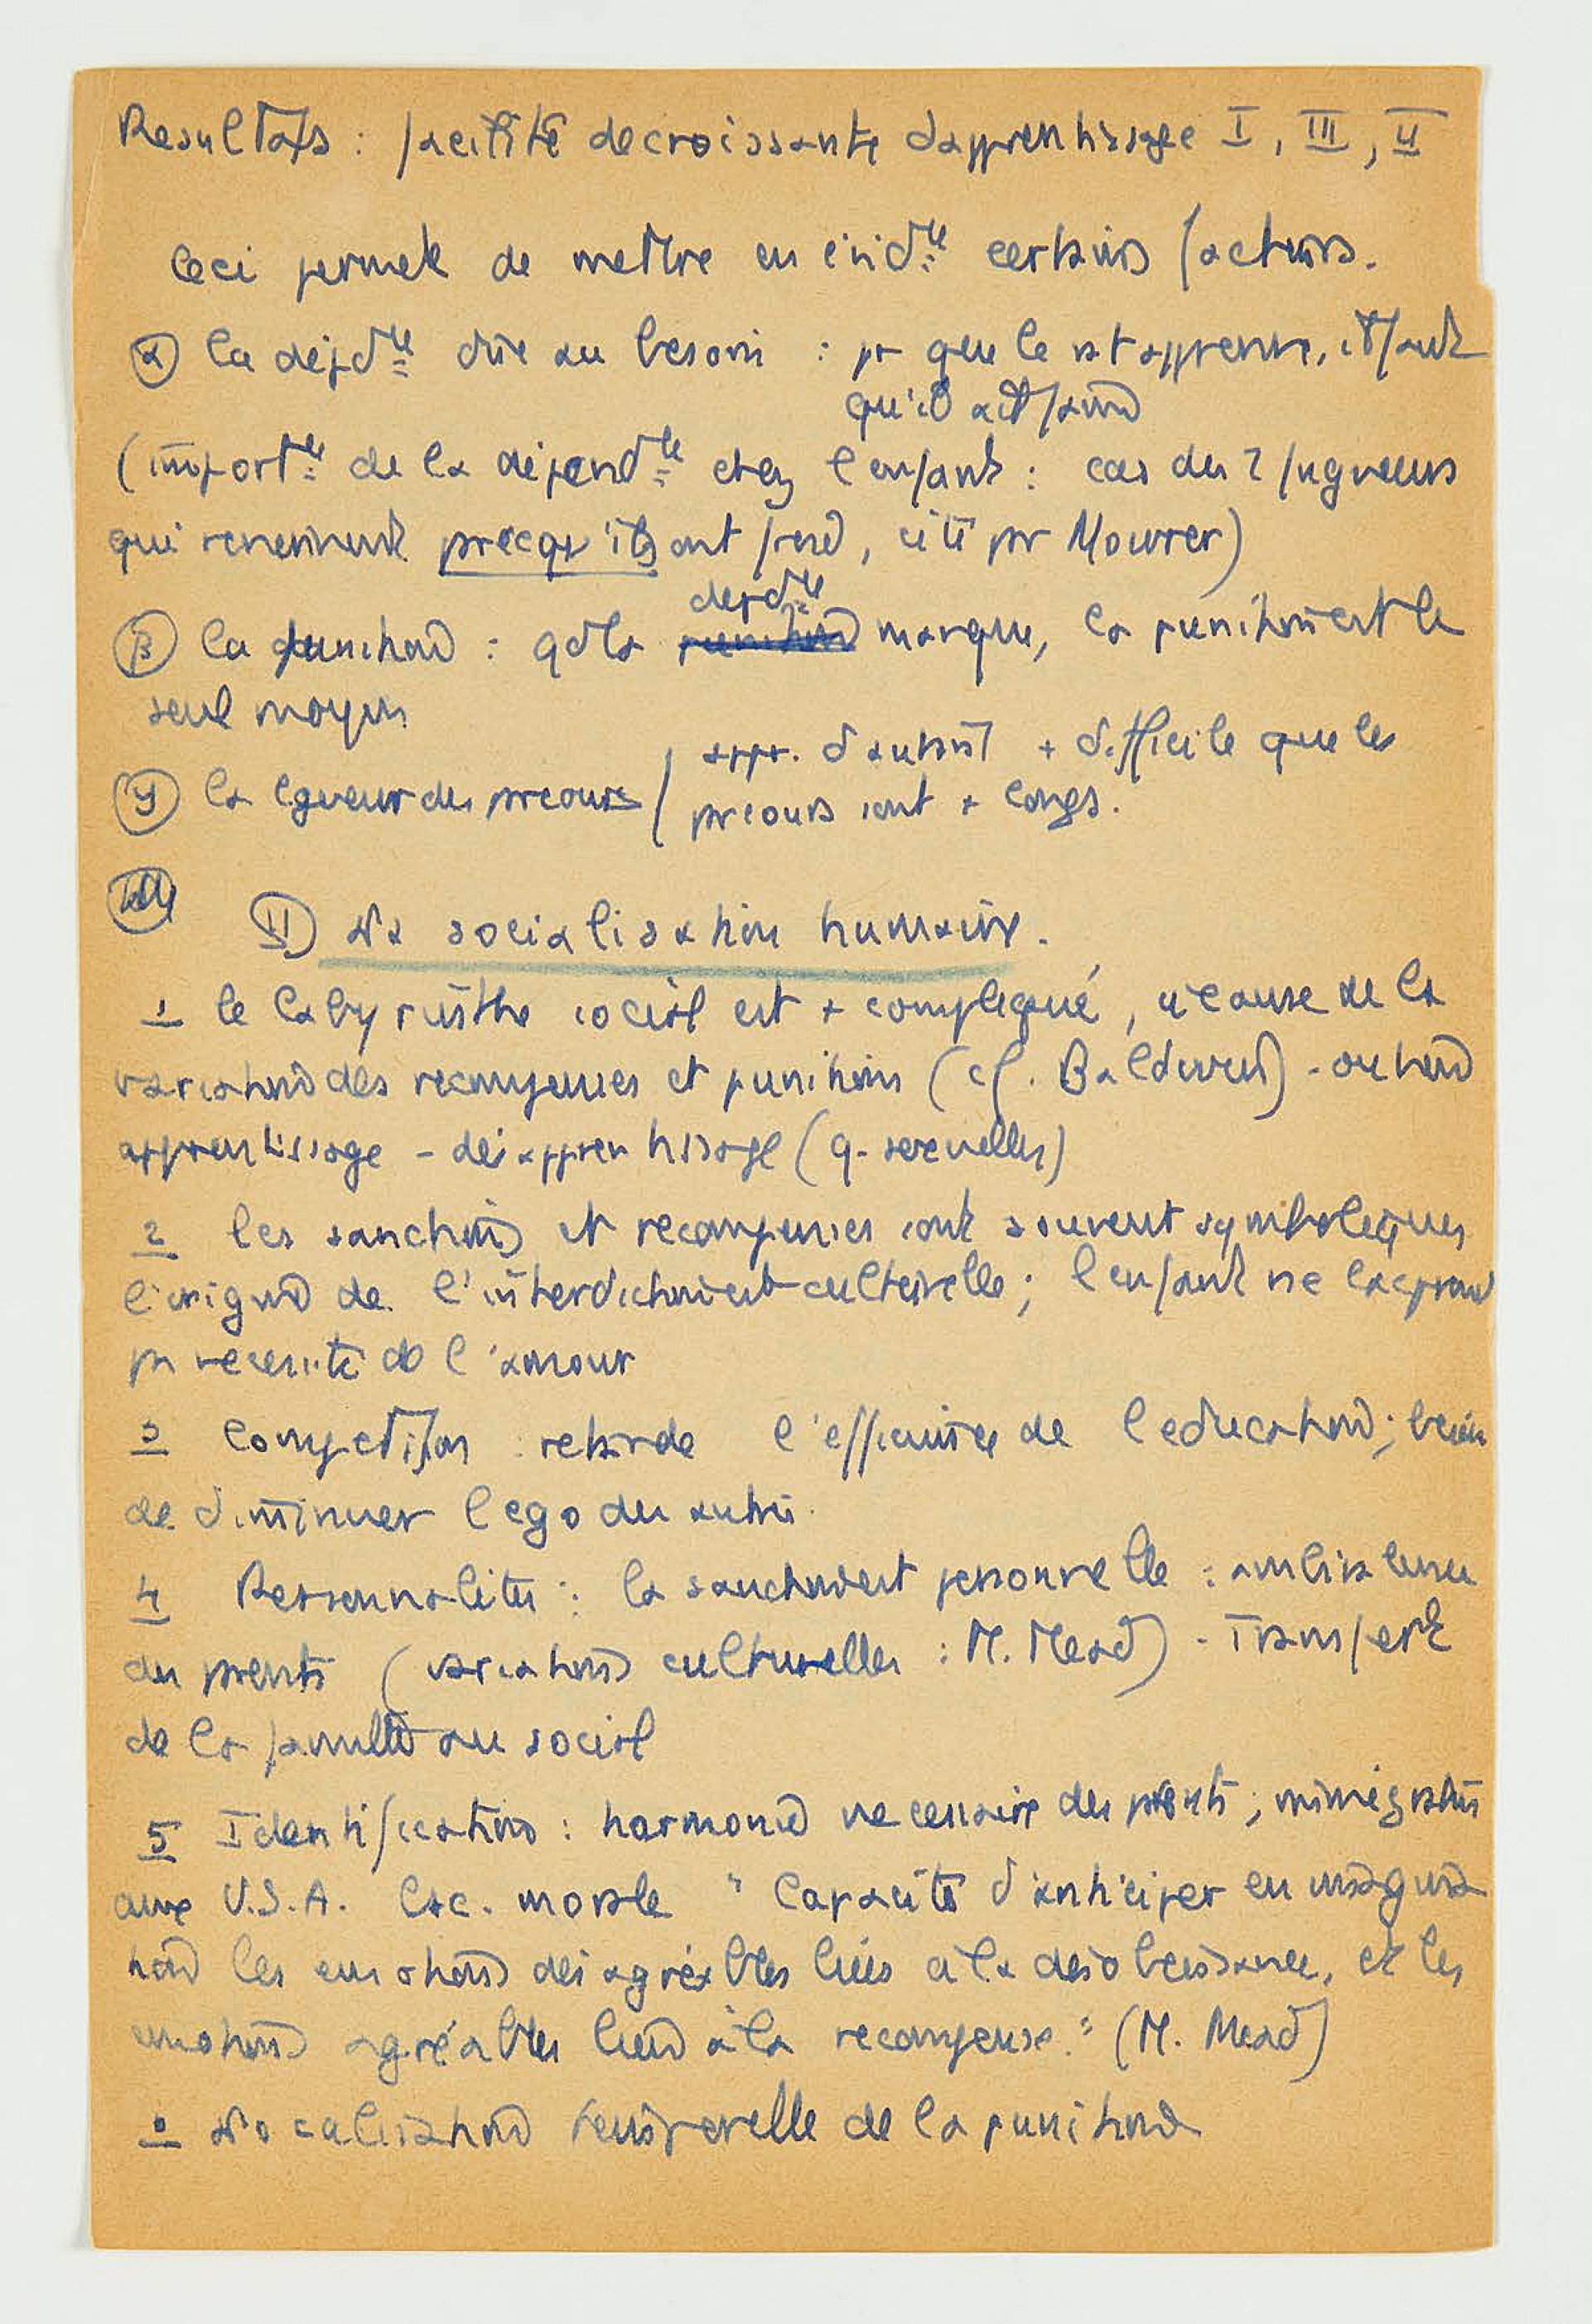 Resultats : facilité decroissante d'apprentissage I, III, II
Ceci permet de mettre en évidce certains facteurs.
α la dépdce due au besoin : pr que le rat apprenne, il faut
qu'il ait faim
(importce de la dépendce chez l'enfant : cas des 2 fugueurs
qui reviennent parcequ'ils ont froid, cité par Mowrer)
dépdce
β la punition : qd la punition manque, la punition est le
seul moyen
γ la longueur des parcours / appr. d'autant + difficile que les
parcours sont + longs.
II La socialisation humaine.
1 le labyrinthe social est + compliqué, à cause de la
variation des recompenses et punitions (cf. Baldwin) - ou bien
apprentissage - désapprentissage (q. sexuelles)
2 les sanctions et recompenses sont souvent symboliques
l'origine de l'interdiction est culturelle ; l'enfant ne la comprend
par necessité de l'amour
3 Competition retarde l'efficacité de l'education ; besoin
de diminuer l'ego des autres.
4 Personnalités : la sanction est personnelle : ambivalence
des parents (variations culturelles : M. Mead) - Transfert
de la famille au social
5 Identification : harmonie necessaire des parents ; immigrations
aux U.S.A. Csc. morale " Capacité d'anticiper en imagina
tion les emotions désagréables liées à la desobeissance, et les
emotions agréables liées à la recompense." (M. Mead)
Localisation temporelle de la punition